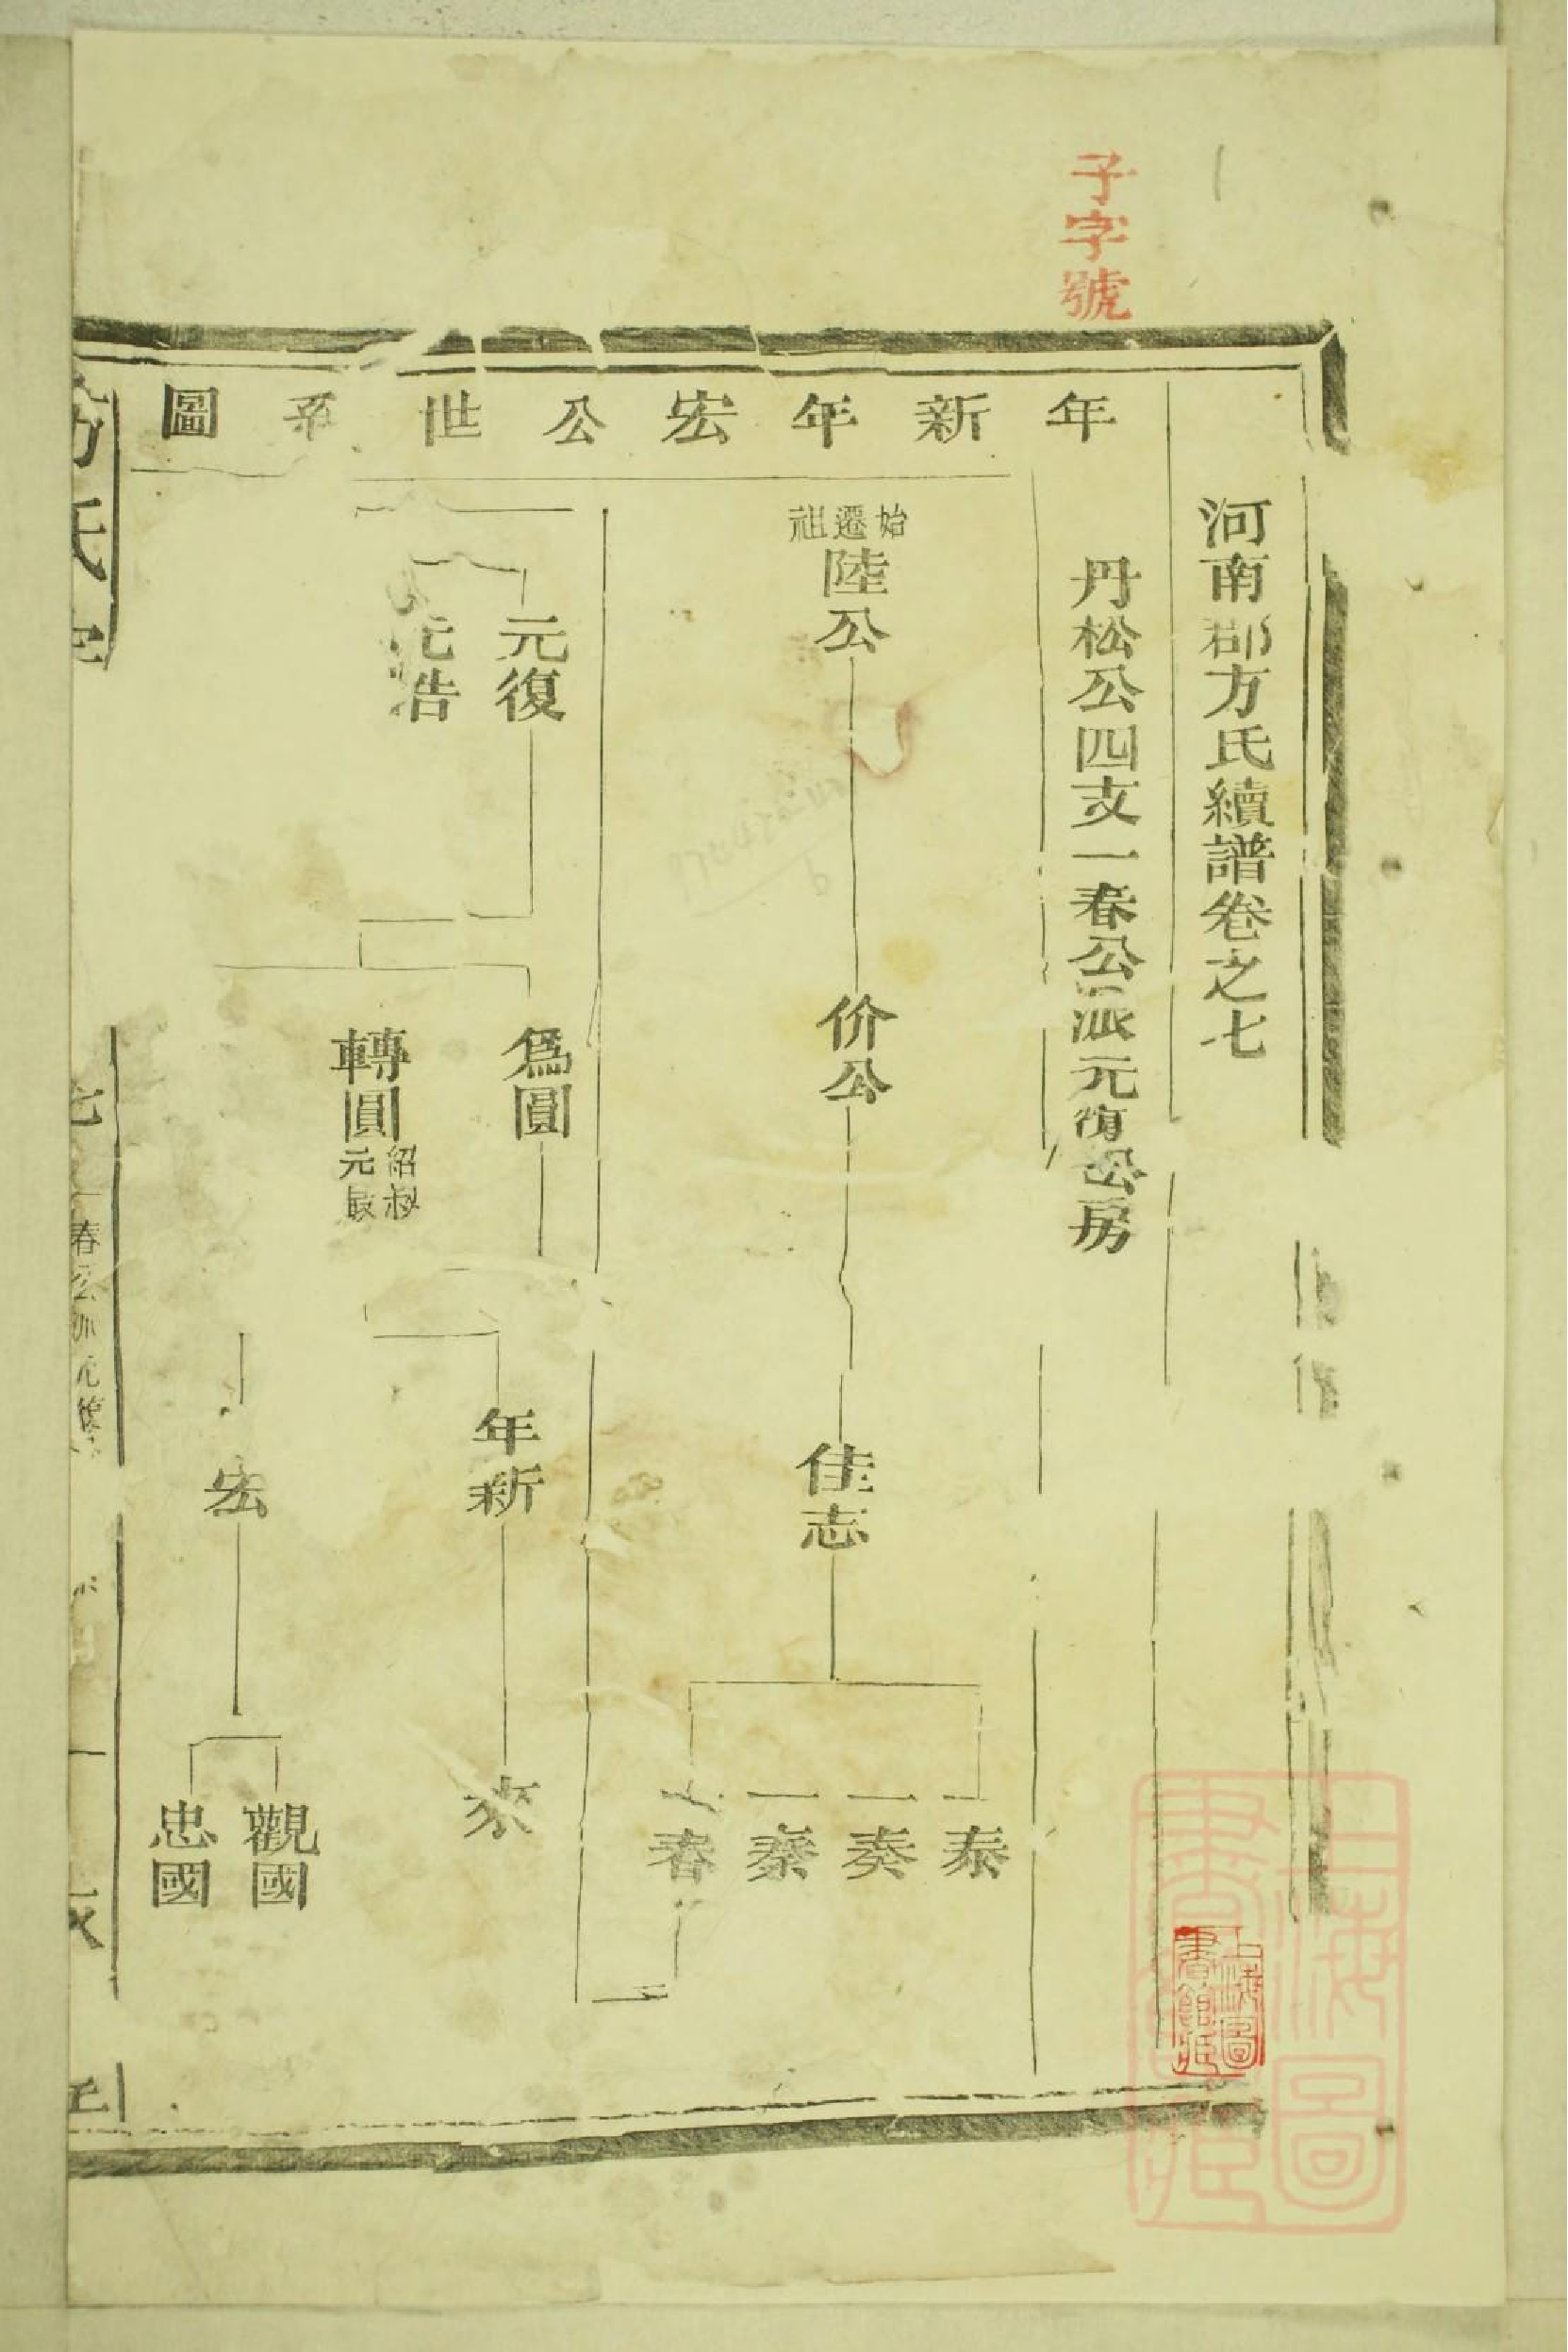 子字號
河南郡方氏續譜卷之七
丹松公四支一春公派元復公房
年新年宏公世系圖
始遷祖
陸公
价公
佳志
一泰
一奏
一秦
一春
元復
元浩
爲圓
轉圓
紹叔
元
年新
宏
來
觀國
忠國
方氏
七
一春公派元復
一
上海圖書館藏
上海圖書館藏